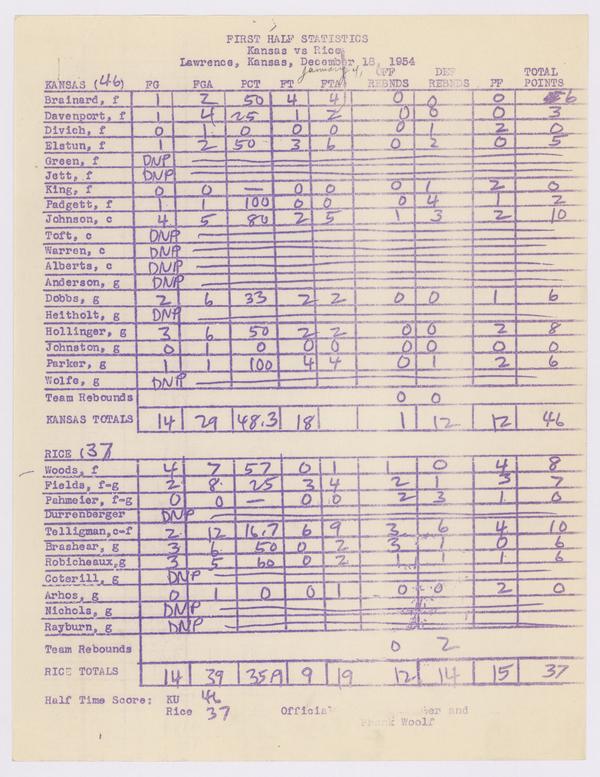 FIRST HALF STATISTICS
Kansas vs Rice
Lawrence, Kansas, December 18, 1954
January 4,
KANSAS (46) FG FGA PCT FT FTA OFF REBNDS DEF REBNDS PF TOTAL POINTS
Brainard, f 1 2 50 4 4 0 0 0 6
Davenport, f 1 4 25 1 2 0 0 0 3
Divich, f 0 1 0 0 0 0 1 2 0
Elstun, f 1 2 50 3 6 0 2 0 5
Green, f DNP
Jett, f DNP
King, f 0 0 — 0 0 0 1 2 0
Padgett, f 1 1 100 0 0 0 4 1 2
Johnson, c 4 5 80 2 5 1 3 2 10
Toft, c DNP
Warren, c DNP
Alberts, c DNP
Anderson, g DNP
Dobbs, g 2 6 33 2 2 0 0 1 6
Heitholt, g DNP
Hollinger, g 3 6 50 2 2 0 0 2 8
Johnston, g 0 1 0 0 0 0 0 0 0
Parker, g 1 1 100 4 4 0 1 2 6
Wolfe, g DNP
Team Rebounds 0 0
KANSAS TOTALS 14 29 48.3 18 1 12 12 46
RICE (37)
Woods, f 4 7 57 0 1 1 0 4 8
Fields, f-g 2 8 25 3 4 2 1 3 7
Pahmeier, f-g 0 0 — 0 0 2 3 1 0
Durrenberger DNP
Telligman,c-f 2 12 16.7 6 9 3 6 4 10
Brashear, g 3 6 50 0 2 3 1 0 6
Robicheaux,g 3 5 60 0 2 1 1 1 6
Coterill, g DNP
Arhos, g 0 1 0 0 1 0 0 2 0
Nichols, g DNP
Rayburn, g DNP
Team Rebounds 0 2
RICE TOTALS 14 39 35.9 9 19 12 14 15 37
Half Time Score: KU 46
Rice 37 and
Woolf